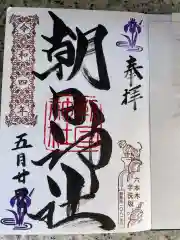 奉拝
六本木
芋洗坂
朝日神社
朝日
神社
令和四年
五月廿日